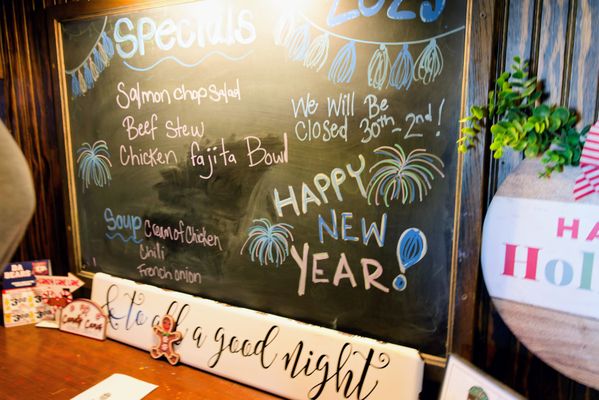 Specials
Salmon chop Salad
Beef Stew
Chicken fajita Bowl
Soup
Cream of Chicken
Chili
French onion
2025
We Will Be
Closed 30th-2nd!
HAPPY
NEW
YEAR!
& to all a good night
Candy Cane
HA
Holi